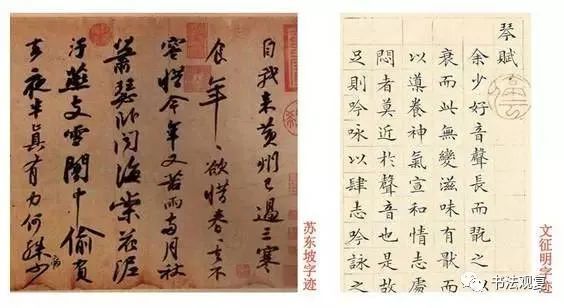 自我来黄州已過三寒
食年〻欲惜春〻去不
容惜今年又苦雨兩月秋
蕭瑟卧聞海棠花泥
汙燕支雪闇中偷負
去夜半真有力何殊少
病
苏东坡字迹
琴賦
余少好音聲長而翫之以
衰而此無變滋味有猒而
以導養神氣宣和情志處
悶者莫近於聲音也是故
足則吟咏以肆志吟詠之
文征明字迹
书法观复